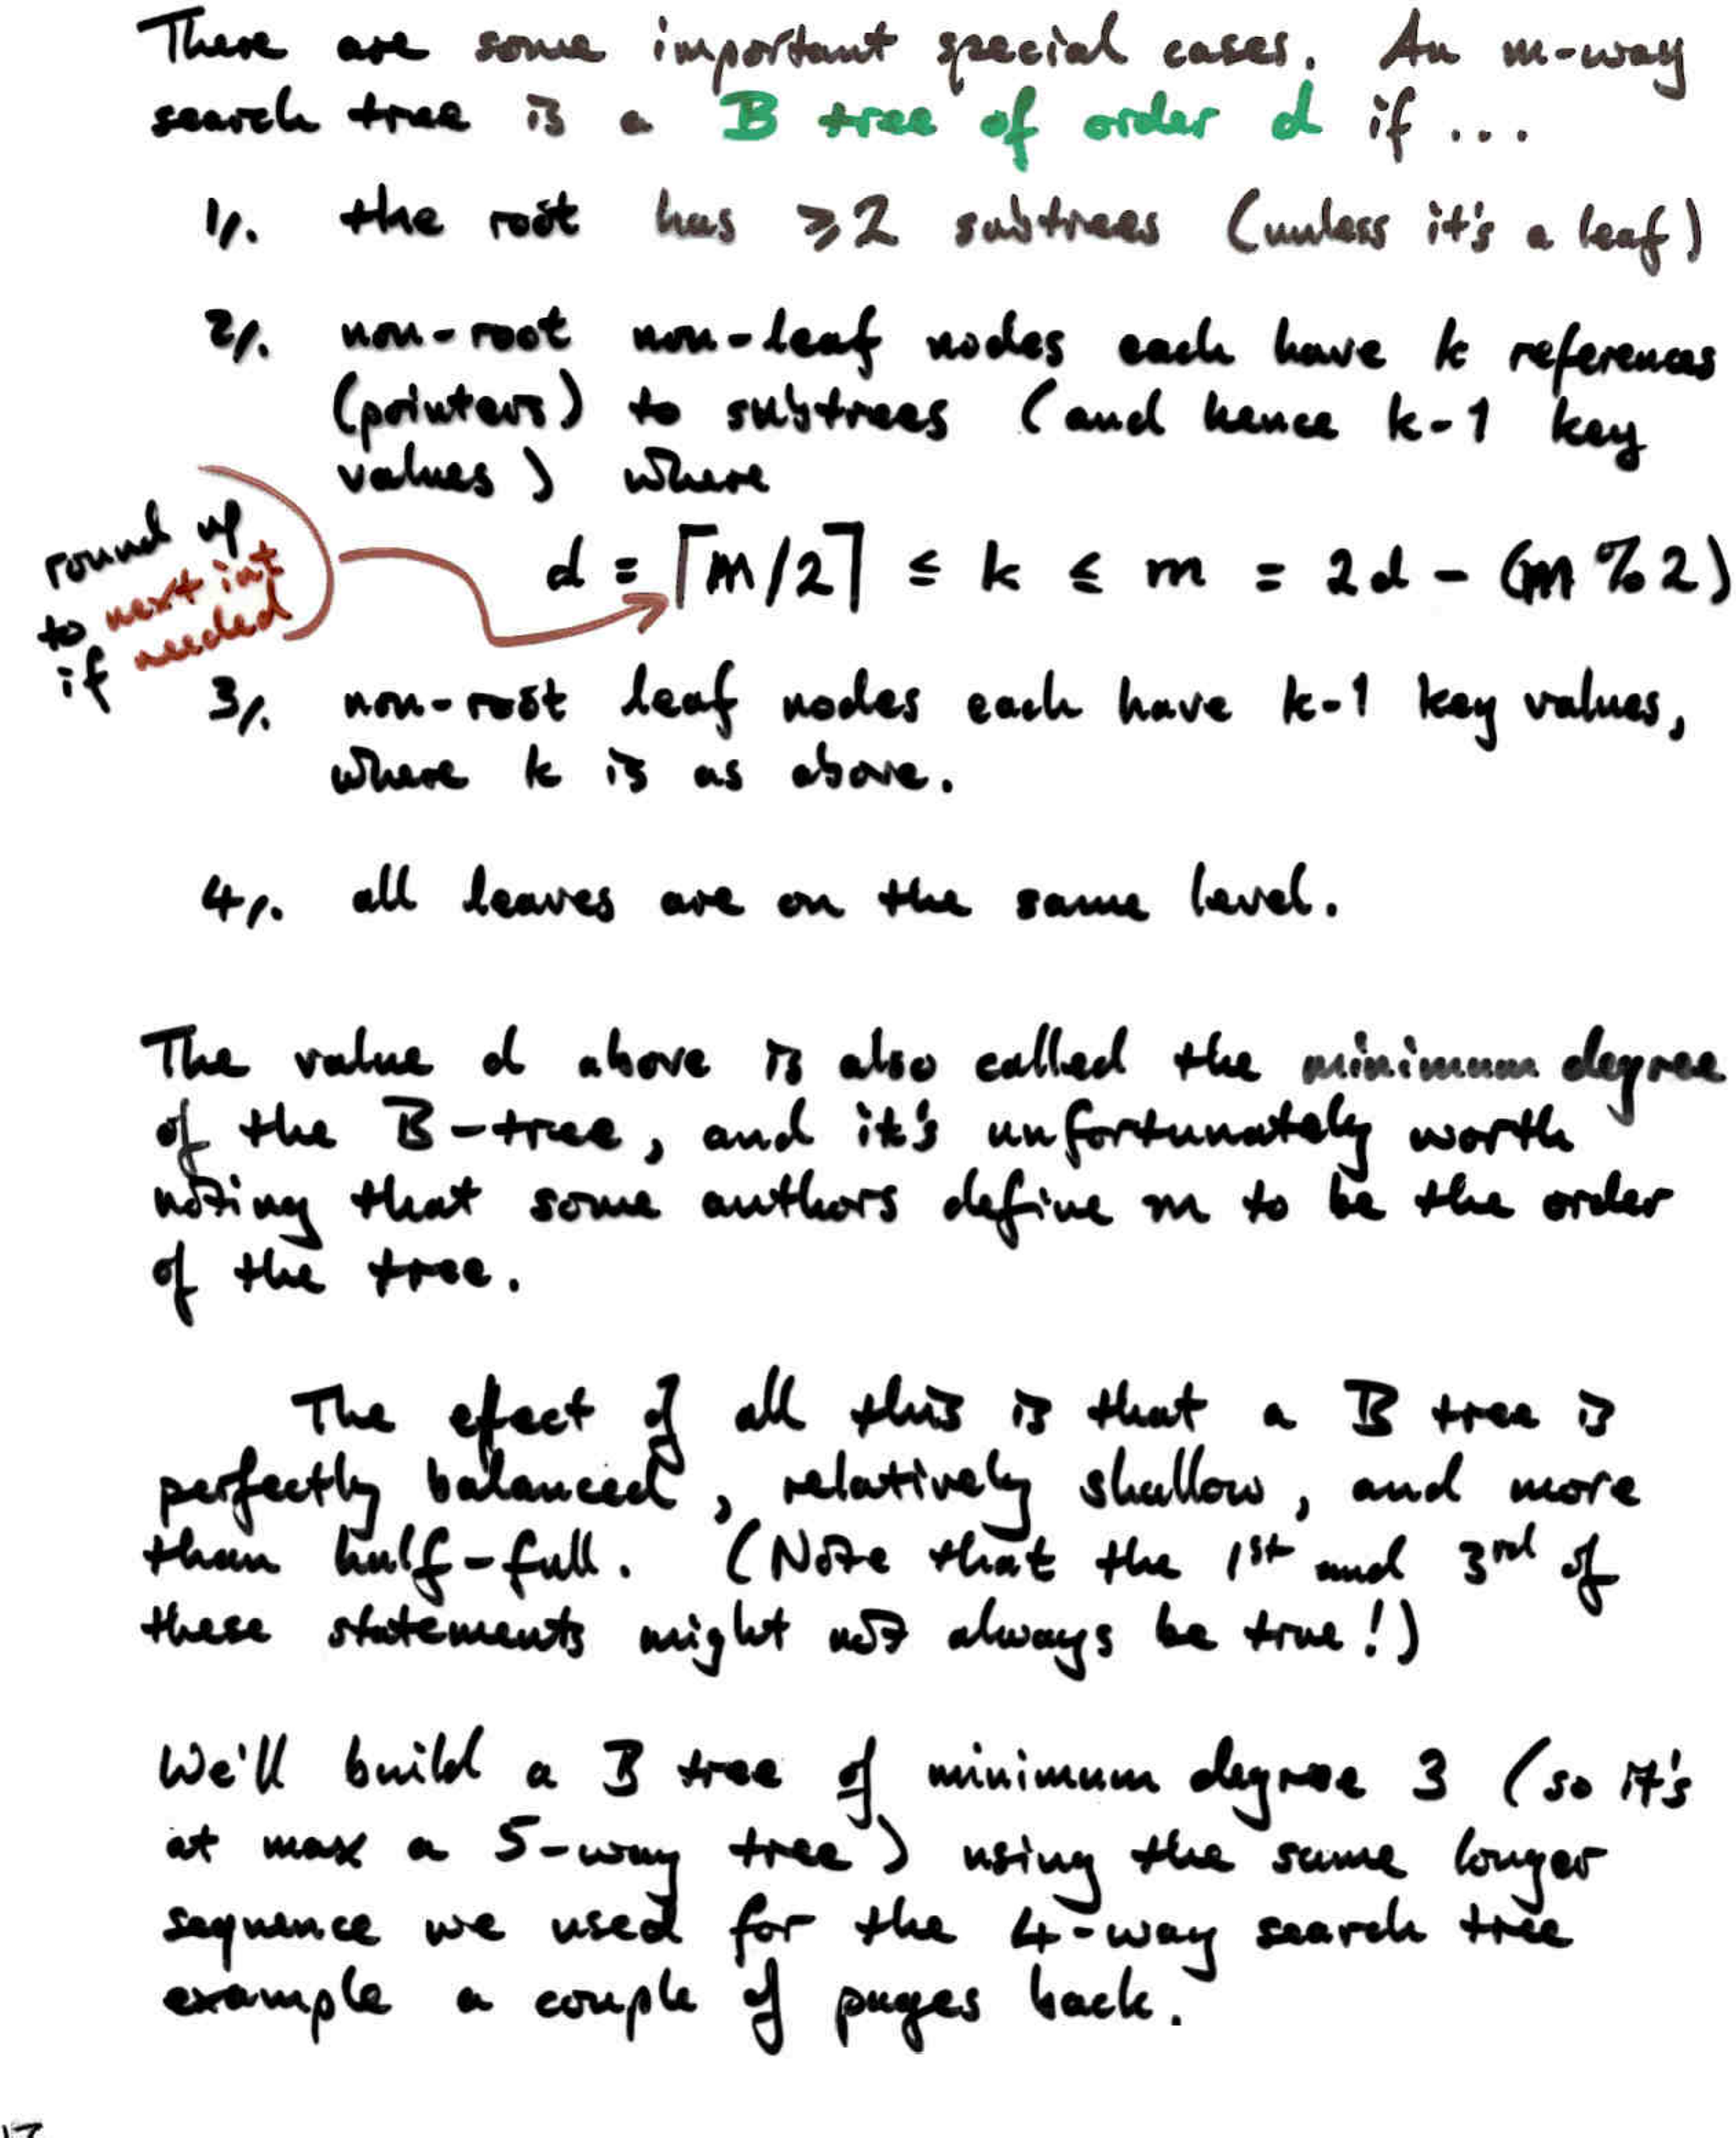 There are some important special cases. An m-way
search tree is a B tree of order d if ...
1/. the root has ⩾2 subtrees (unless it's a leaf)
2/. non-root non-leaf nodes each have k references
(pointers) to subtrees (and hence k-1 key
values) where
round up
to next int
if needed
d = ⌈m/2⌉ ≤ k ≤ m = 2d - (m % 2)
3/. non-root leaf nodes each have k-1 key values,
where k is as above.
4/. all leaves are on the same level.
The value d above is also called the minimum degree
of the B-tree, and it's unfortunately worth
noting that some authors define m to be the order
of the tree.
The efect of all this is that a B tree is
perfectly balanced, relatively shallow, and more
than half-full. (Note that the 1st and 3rd of
these statements might not always be true!)
We'll build a B tree of minimum degree 3 (so it's
at max a 5-way tree) using the same longer
sequence we used for the 4-way search tree
example a couple of pages back.